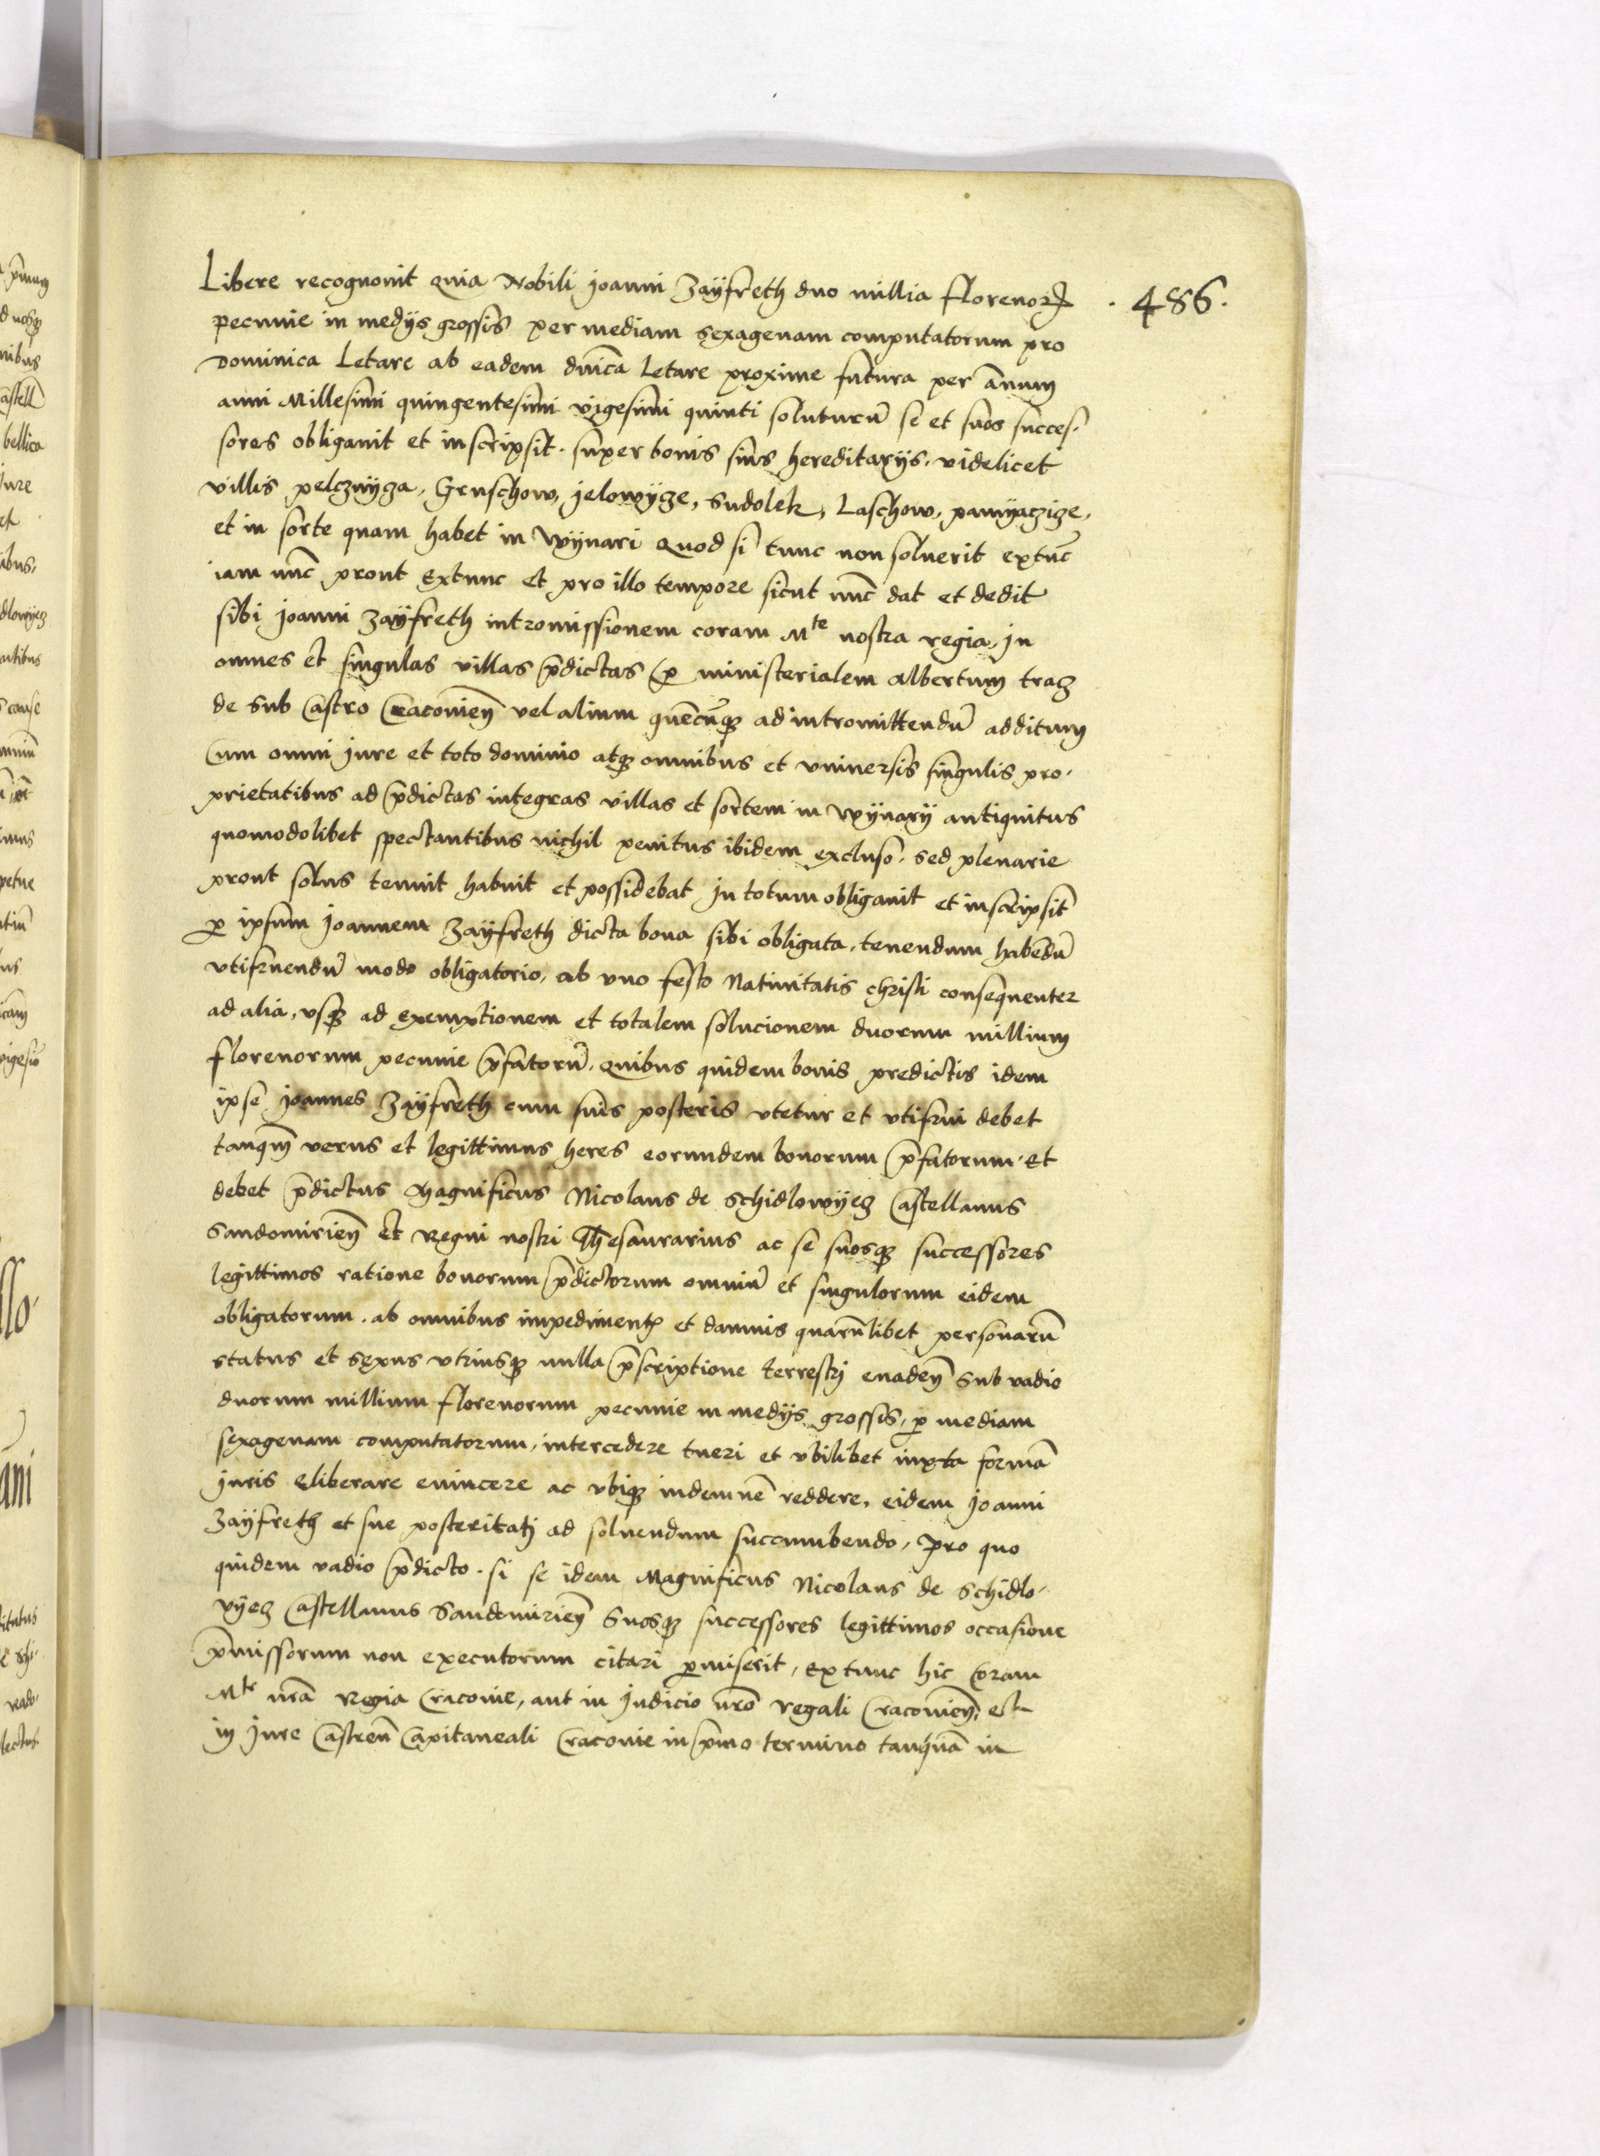 Libere recognouit Quia Nobili joanni Zayfreth duo millia florenoꝝ
· 486 ·
pecunie in medijs grossis per mediam sexagenam computatorum pro
Dominica Letare ab eadem dnica Letare proxime futura per annum
anni Millesimi quingentesimi vigesimi quinti soluturū se et suos succes-
sores obligauit et inscripsit. super bonis suis hereditarijs. videlicet
villis pelcznijcza, Gruschow, jelowijcze, Sudolek, Laschow, pamyaczicze,
et in sorte quam habet in Wijnari Quod si tunc non soluerit extūc
iam nūc prout extunc et pro illo tempore sicut nūc dat et dedit
sibi joanni Zayfreth intromissionem coram Mte nostra regia. jn
omnes et singulas villas p̄dictas ꝑ ministerialem Albertum tracz
de sub Castro Cracouien̄ vel alium quēcūqꝫ ad intromittendū additum
Cum omni jure et toto dominio atqꝫ omnibus et vniuersis singulis pro-
prietatibus ad p̄dictas integras villas et sortem in Wijnarij antiquitus
quomodolibet spectantibus nichil penitus ibidem excluso. sed plenarie
prout solus tenuit habuit et possidebat jn totum obligauit et inscripsit
ꝑ ipsum joannem Zayfreth dicta bona sibi obligata. tenendum habendū
vtifruendū modo obligatorio. ab vno festo Natiuitatis christi consequenter
ad alia, vsqꝫ ad exemptionem et totalem solucionem duorum millium
florenorum pecunie p̄fatorū. Quibus quidem bonis predictis idem
ipse joannes Zayfreth cum suis posteris vtetur et vtifrui debet
tanqm̄ verus et legittimus heres eorundem bonorum p̄fatorum. Et
debet p̄dictus Magnificus Nicolaus de Schidlowijecz Castellanus
Sandomirien̄ et Regni nostri Thesaurarius ac se suosqꝫ successores
legittimos ratione bonorum p̄dictorum omniū et singulorum eidem
obligatorum. ab omnibus impedimentꝭ et damnis quarūlibet personarū
status et sexus vtriusqꝫ nulla p̄scriptione terrestrj euaden̄ sub vadio
duorum millium florenorum pecunie in medijs grossis, ꝑ mediam
sexagenam computatorum, intercedere tueri et vbilibet iuxta formā
juris eliberare euincere ac vbiqꝫ indemnē reddere, eidem joanni
Zayfreth et sue posteritatj ad soluendum succumbendo, Pro quo
quidem vadio p̄dicto. si se idem Magnificus Nicolaus de Schidlo-
vijecz Castellanus Sandomirien̄ suosqꝫ successores legittimos occasione
p̄missorum non executorum citari ꝑmiserit, Extunc hic coram
Mte nrā Regia Cracouie, aut in judicio nrō regali Cracouien̄, et
in jure Castren̄ Capitaneali Cracouie in p̄mo termino tanquā in